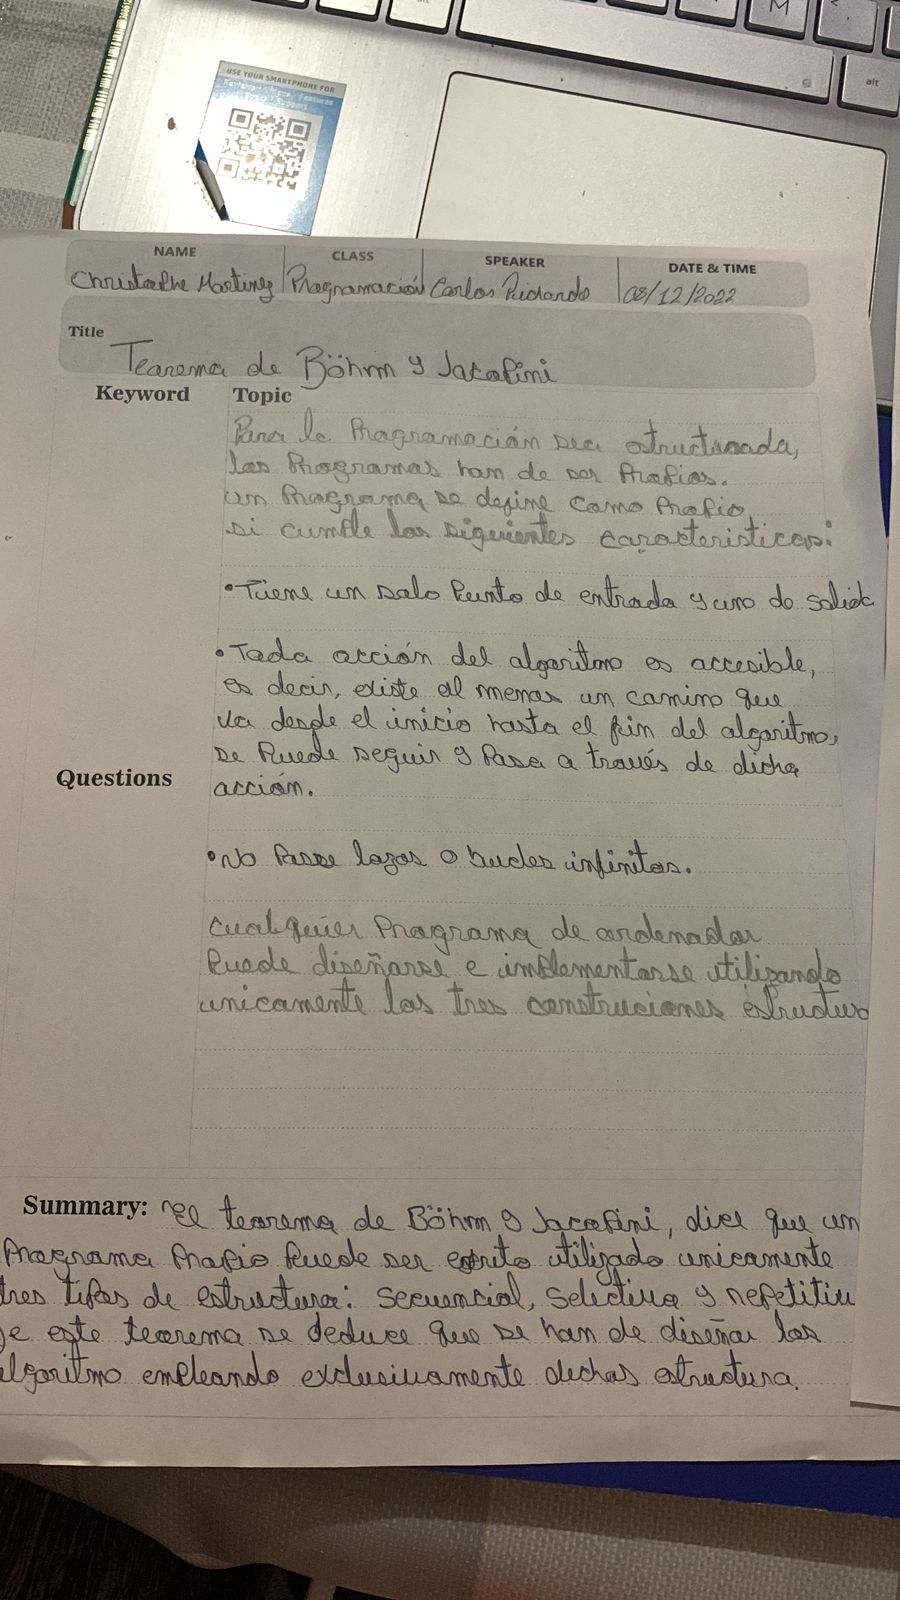 M
alt
alt
USE YOUR SMARTPHONE FOR
NAME
CLASS
SPEAKER
DATE & TIME
Christophe Martinez
Programación
Carlos Pichardo
08/12/2022
Title
Teorema de Böhm y Jacopini
Keyword
Topic
Para la Programación sea estructurada,
los Programas han de ser Propios.
un Programa se define como Propio
si cumple las siguientes caracteristicas:
• Tiene un solo Punto de entrada y uno de salida
• Toda acción del algoritmo es accesible,
es decir, existe al menos un camino que
va desde el inicio hasta el fin del algoritmo,
se Puede seguir y Pasa a través de dicha
Questions
acción.
• No Posee lazos o bucles infinitos.
cualquier Programa de ordenador
Puede diseñarse e implementarse utilizando
unicamente las tres construciones estructur
Summary: El teorema de Böhm y Jacopini, dice que un
Programa Propio Puede ser escrito utilizado unicamente
tres tipos de estructura: secuencial, selectiva y repetitiv
De este teorema se deduce que se han de diseñar los
algoritmo empleando exclusivamente dichas estructura.